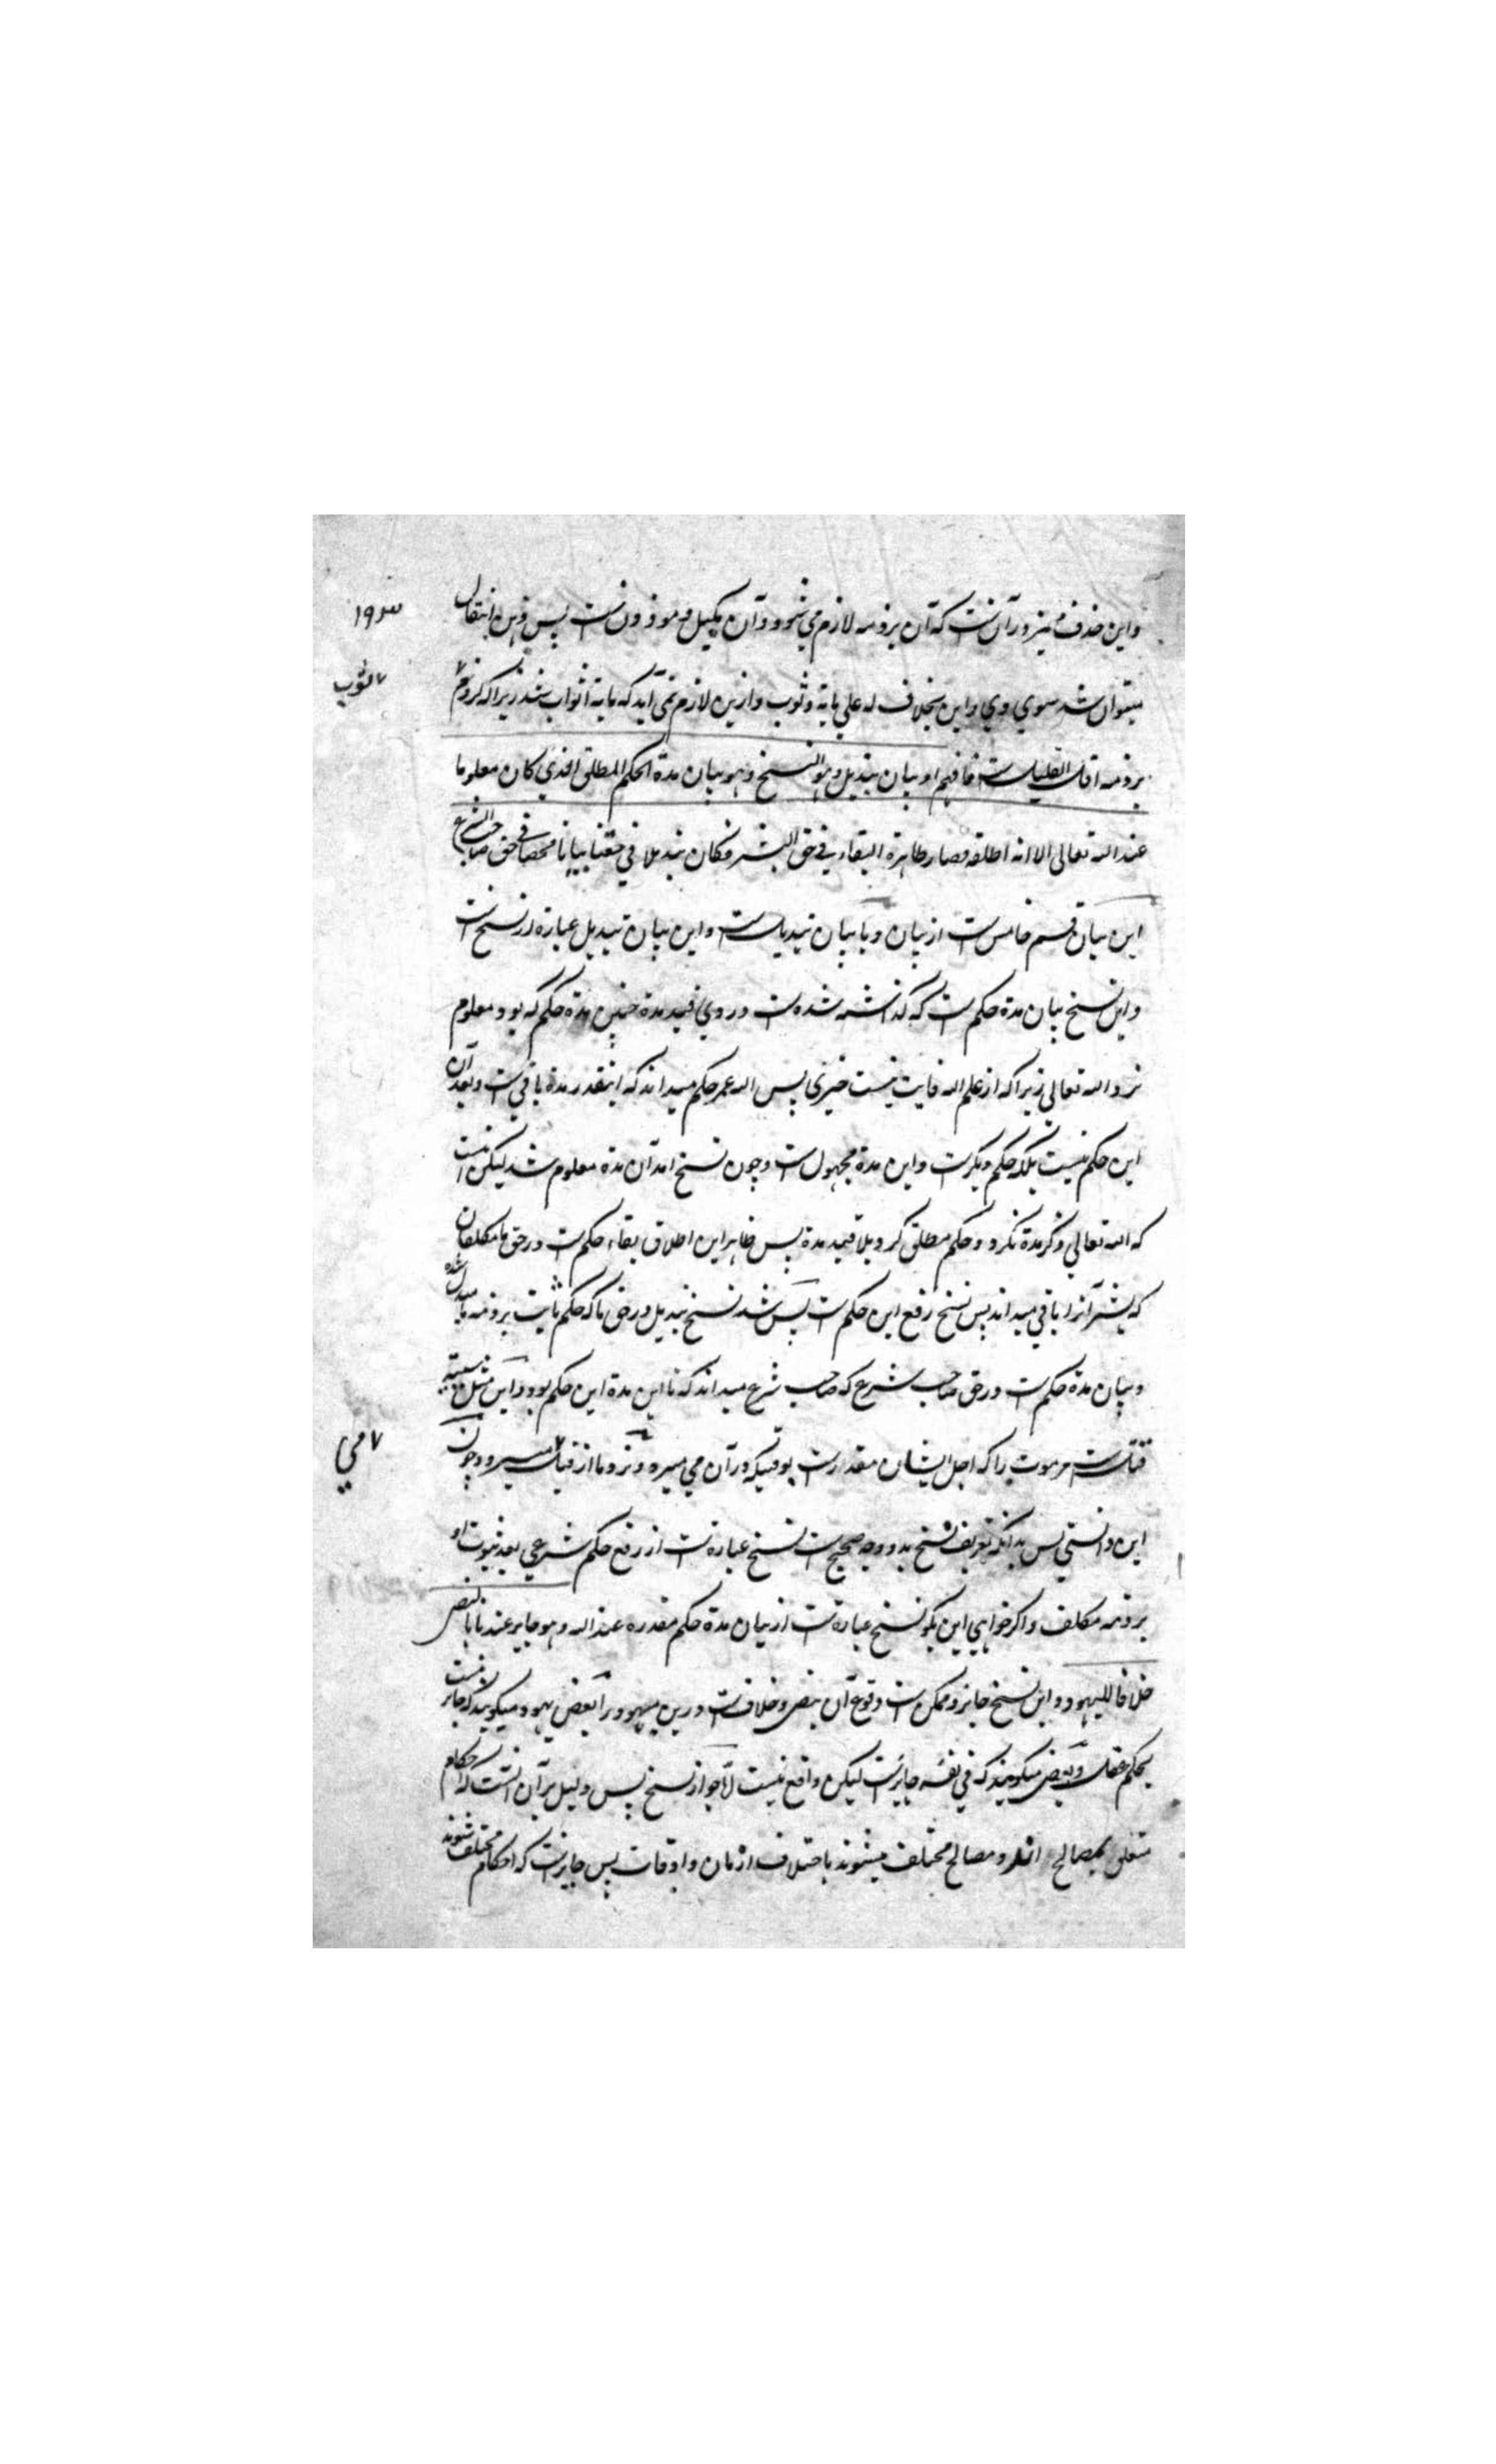 واین حذف ممیز در آنست که آن بر ذمه لازم می شود و آن مکیل و موزونست پس ذهن انتقال
۱۹۳
میتوان شد سوي وي و این بخلاف له علي مایة و ثوب و ازین لازم نمی آید که مایة اثواب شند زیرا که لزوم
ثوب
بر ذمه اقل القلیلست فافهم او بیان تبدیل وهو النسخ وهو بیان مدة الحکم المطلق الذي کان معلوما
عند الله تعالی الا انه اطلقه فصار ظاهره البقاء في حق البشر فکان تبدیلا في حقنا بیانا محضا في حق صاحب الشرع
این بیان قسم خامس ست از بیان و یا بیان تبدیلست و این بیان تبدیل عبارة از نسخ ست
و این نسخ بیان مدة حکم ست که گذاشته شده ست در وي قید مدة چنین مدة حکم که بود معلوم
نزد الله تعالی زیرا که از علم الله فایت نیست چیزی پس الله عمر حکم میداند که اینقدر مدة باقي ست و بعد آن
این حکم نیست بلکه حکم دیگرست و این مدة مجهول ست و چون نسخ امد آن مدة معلوم شد لیکن اینست
که الله تعالي ذکر مدة نکرد و حکم مطلق کرد بلا قید مدة پس ظاهر این اطلاق بقاء حکم ست در حق ما مکلفان
که بشر آنرا باقي میداند پس نسخ رفع این حکم ست پس شد نسخ تبدیل در حق ما که حکم ثابت بر ذمه ما مبدل شده
و بیان مدة حکم ست در حق صاحب شرع که صاحب شرع میداند که تا این مدة این حکم بود و این مثل
قتلست مر موت را که اجل ایشان مقدارست بوقتیکه در آن مي میرد و نزد ما از قتل میرد و چون
مي
این دانستي پس بدانکه تعریف نسخ بدو وجه صحیح ست نسخ عبارة ست از رفع حکم شرعي بعد ثبوت او
بر ذمه مکلف و اگر خواهي این بگو نسخ عبارة ست از بیان مدة حکم مقدره عند الله وهو جایز عندنا بالنص
خلافا للیهود و این نسخ جایز و ممکن ست وقوع آن بنص و خلاف ست درین یهود را بعض یهود میگویند که جایز نیست
بحکم عقل و بعض میگویند که في نفسه جایزست لیکن واقع نیست اما جواز نسخ پس دلیل بر آن آنست که احکام
متعلق بمصالح اند و مصالح مختلف میشوند باختلاف ازمان و اوقات پس جایزست که احکام مختلف شوند